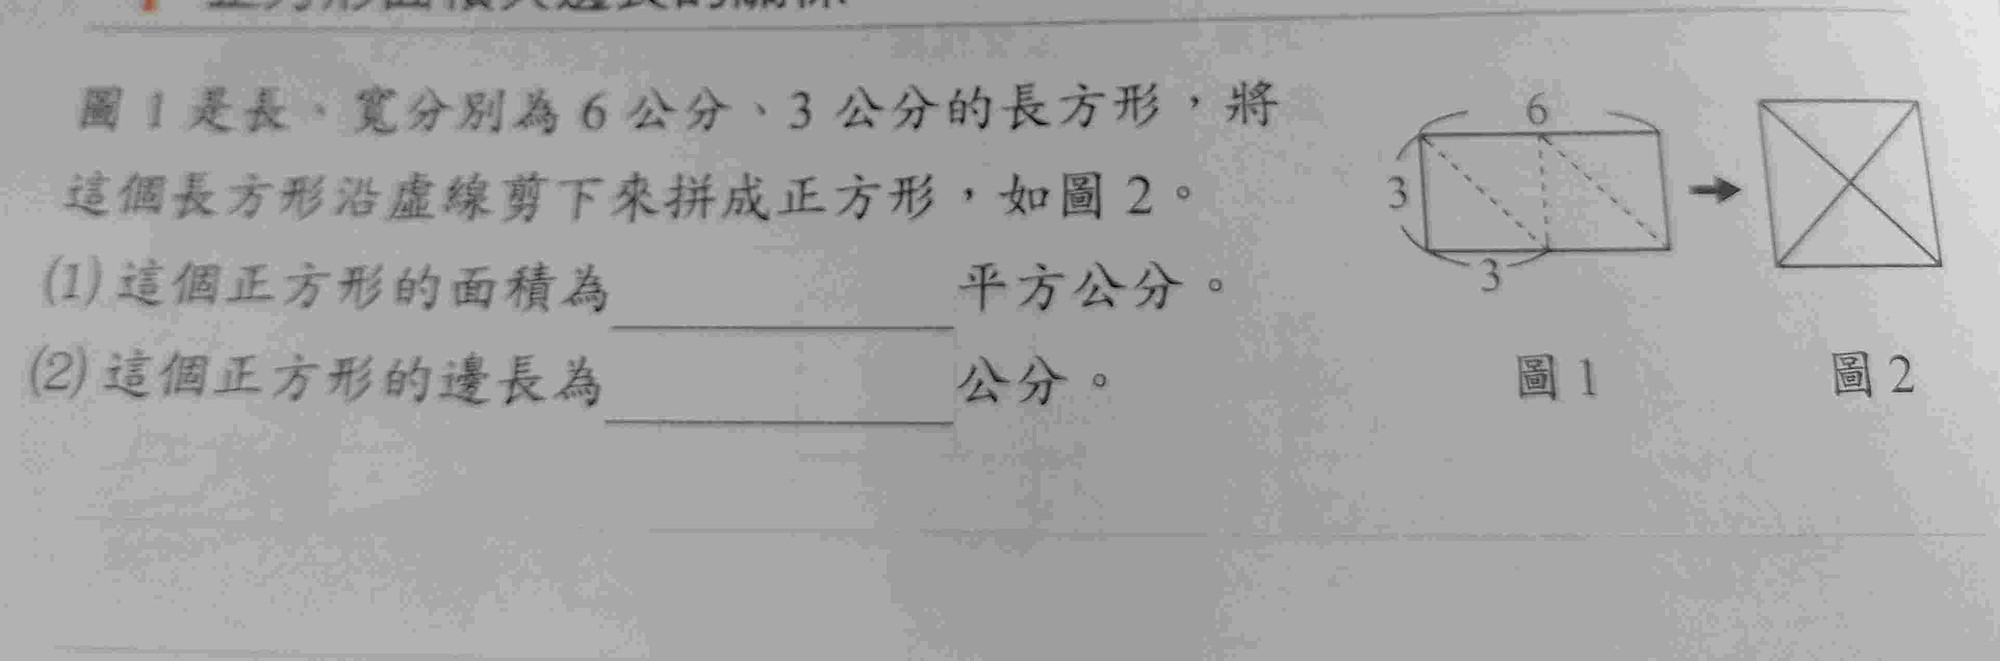 正方形面積與邊長的關係
圖1是長、寬分別為6公分、3公分的長方形，將
這個長方形沿虛線剪下來拼成正方形，如圖2。
(1)這個正方形的面積為 平方公分。
(2)這個正方形的邊長為 公分。
6
3
3
圖1
圖2